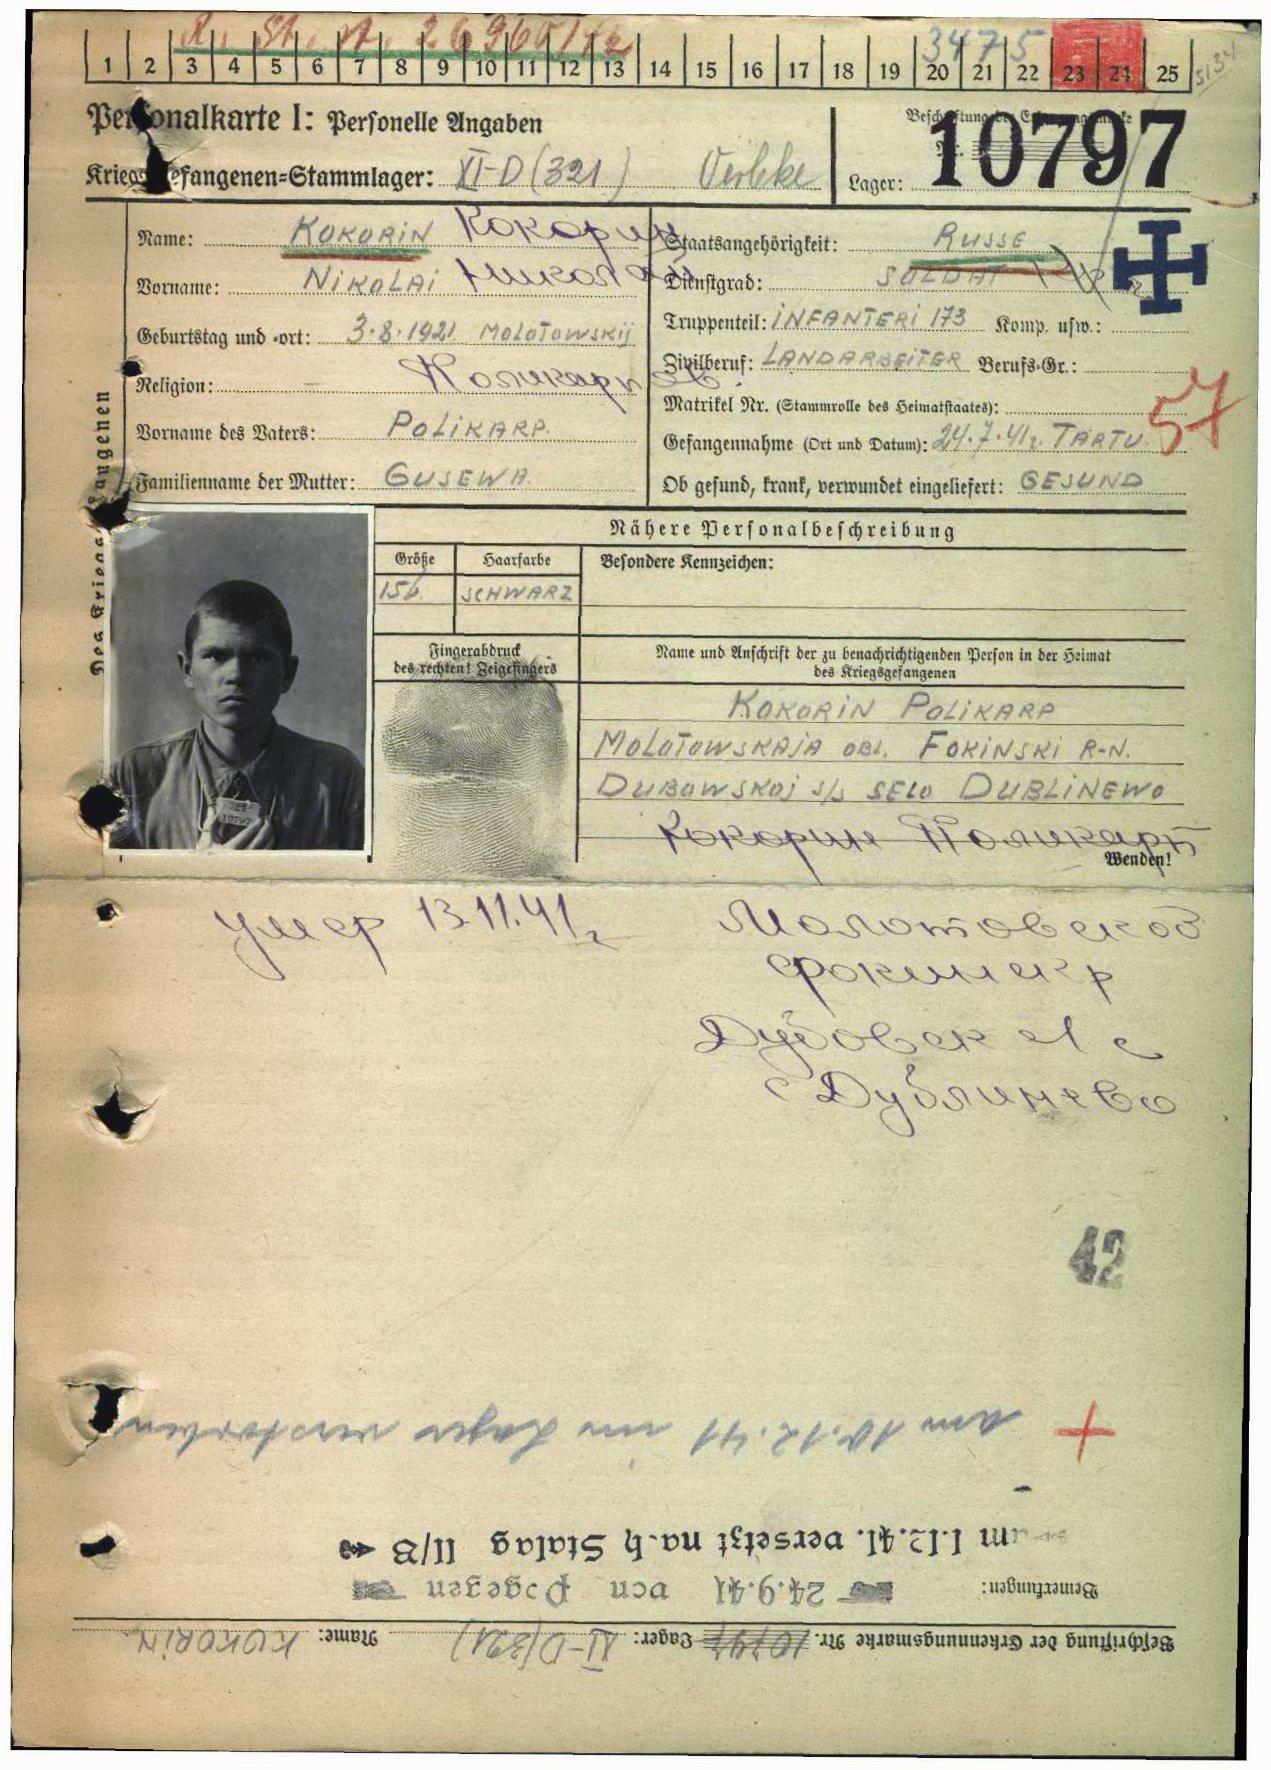 R. St. N. 26960/42
3475
1 2 3 4 5 6 7 8 9 10 11 12 13 14 15 16 17 18 19 20 21 22 23 24 25
Personalkarte I: Personelle Angaben
Kriegsgefangenen-Stammlager: XI-D (321) Oerbke
Beschriftung der Erkennungsmarke
Nr. 10797
Lager:
Des Kriegsgefangenen
Name: KOKORIN Кокорин
Vorname: NIKOLAI Николай
Geburtstag und -ort: 3.8.1921 MOLOTOWSKIJ
Religion: – Поликарпов.
Vorname des Vaters: POLIKARP.
Familienname der Mutter: GUSEWA.
Staatsangehörigkeit: RUSSE
Dienstgrad: SOLDAT
Truppenteil: INFANTERI 173 Komp. usw.:
Zivilberuf: LANDARBEITER Berufs-Gr.:
Matrikel Nr. (Stammrolle des Heimatstaates):
Gefangennahme (Ort und Datum): 24.7.41г. TARTU
Ob gesund, krank, verwundet eingeliefert: GESUND
57
Nähere Personalbeschreibung
Größe Haarfarbe Besondere Kennzeichen:
156. SCHWARZ
Fingerabdruck
des rechten! Zeigefingers
Name und Anschrift der zu benachrichtigenden Person in der Heimat
des Kriegsgefangenen
KOKORIN POLIKARP
MOLOTOWSKAJA OBL. FOKINSKI R-N.
DUBOWSKOJ S/S SELO DUBLINEWO
321
10797
Кокорин Поликарп
Wenden!
умер 13.11.41г
Молотовской
Фокинск р
Дубовск с
с Дублинево
42
+ am 10.12.41 im Lager verstorben
am 1.12.41. versetzt nach Stalag II/B
Bemerkungen: 24.9.41 von Pogegen
Beschriftung der Erkennungsmarke Nr. 10797 Lager: XI-D(321) Name: KOKORIN.